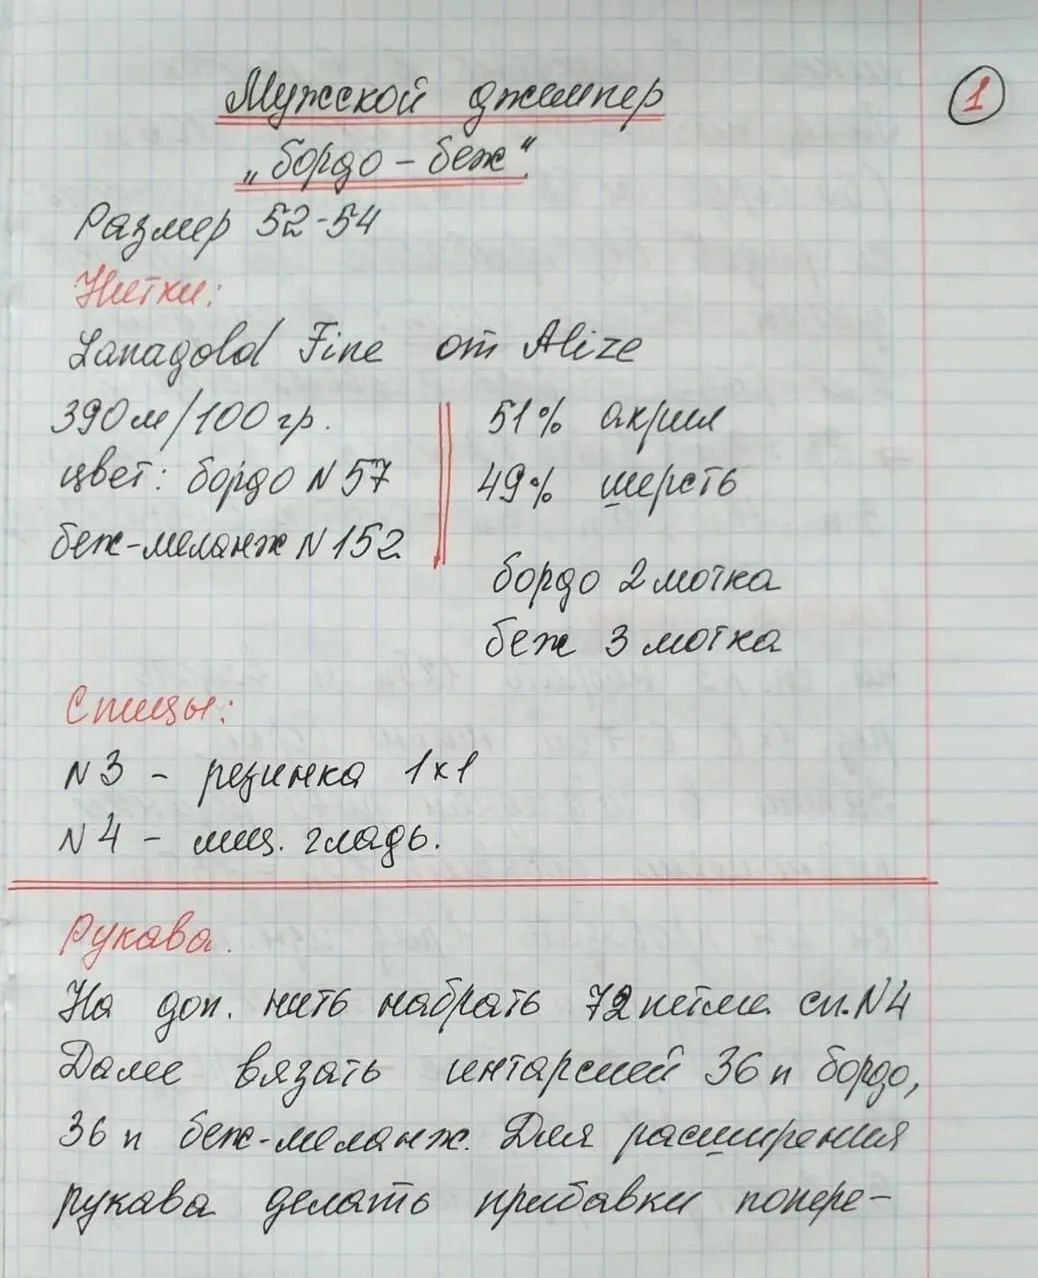 1
Мужской джемпер
„бордо – беж"
Размер 52-54
Нитки:
Lanagold Fine от Alize
390м/100гр.
цвет: бордо N57
беж-меланж N152
51% акрил
49% шерсть
бордо 2 мотка
беж 3 мотка
Спицы:
N3 – резинка 1х1
N4 – лиц. гладь.
Рукава.
На доп. нить набрать 72 петли сп.N4
Далее вязать интарсией 36 п бордо,
36 п беж-меланж. Для расширения
рукава делать прибавки попере-